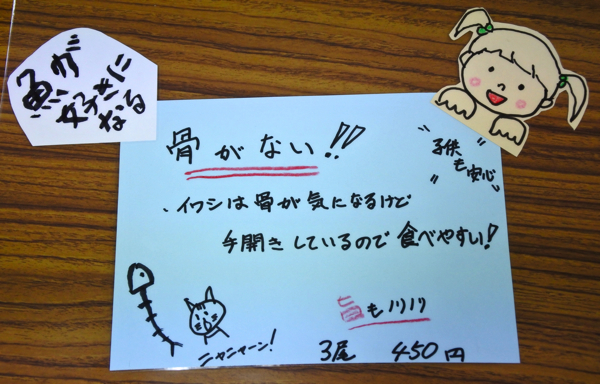 魚が
好きに
なる
骨がない!!
"子供
も安心"
、イワシは骨が気になるけど
手開きしているので食べやすい!
旨もノリノリ
ニャニャーン!
3尾 450円